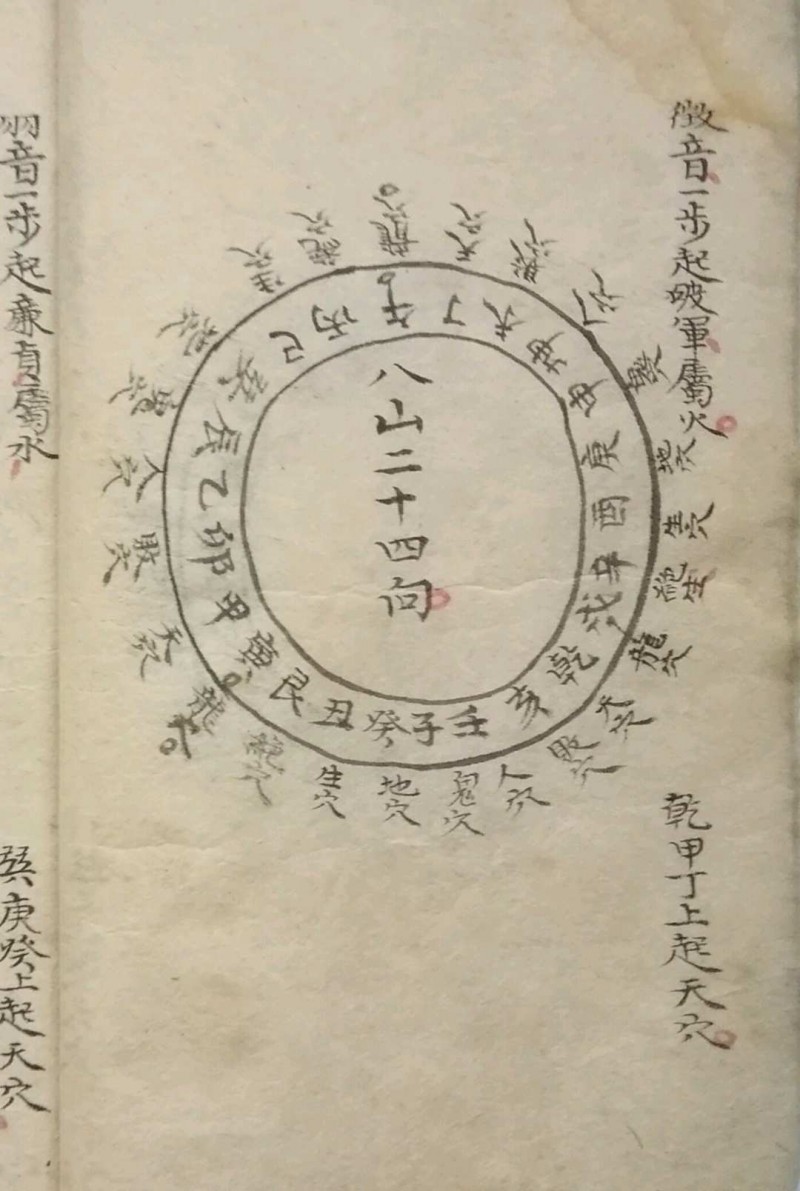 徵音一步起破軍屬火
乾甲丁上起天穴
八山二十四向
壬子癸丑艮寅甲卯乙辰巽巳丙午丁未坤申庚酉辛戌乾亥
鬼穴
地穴
生穴
龍穴
天穴
敗穴
人穴
龍穴
天穴
敗穴
地穴
生穴
龍穴
天穴
人穴
羽音一步起廉貞屬水
巽庚癸上起天穴